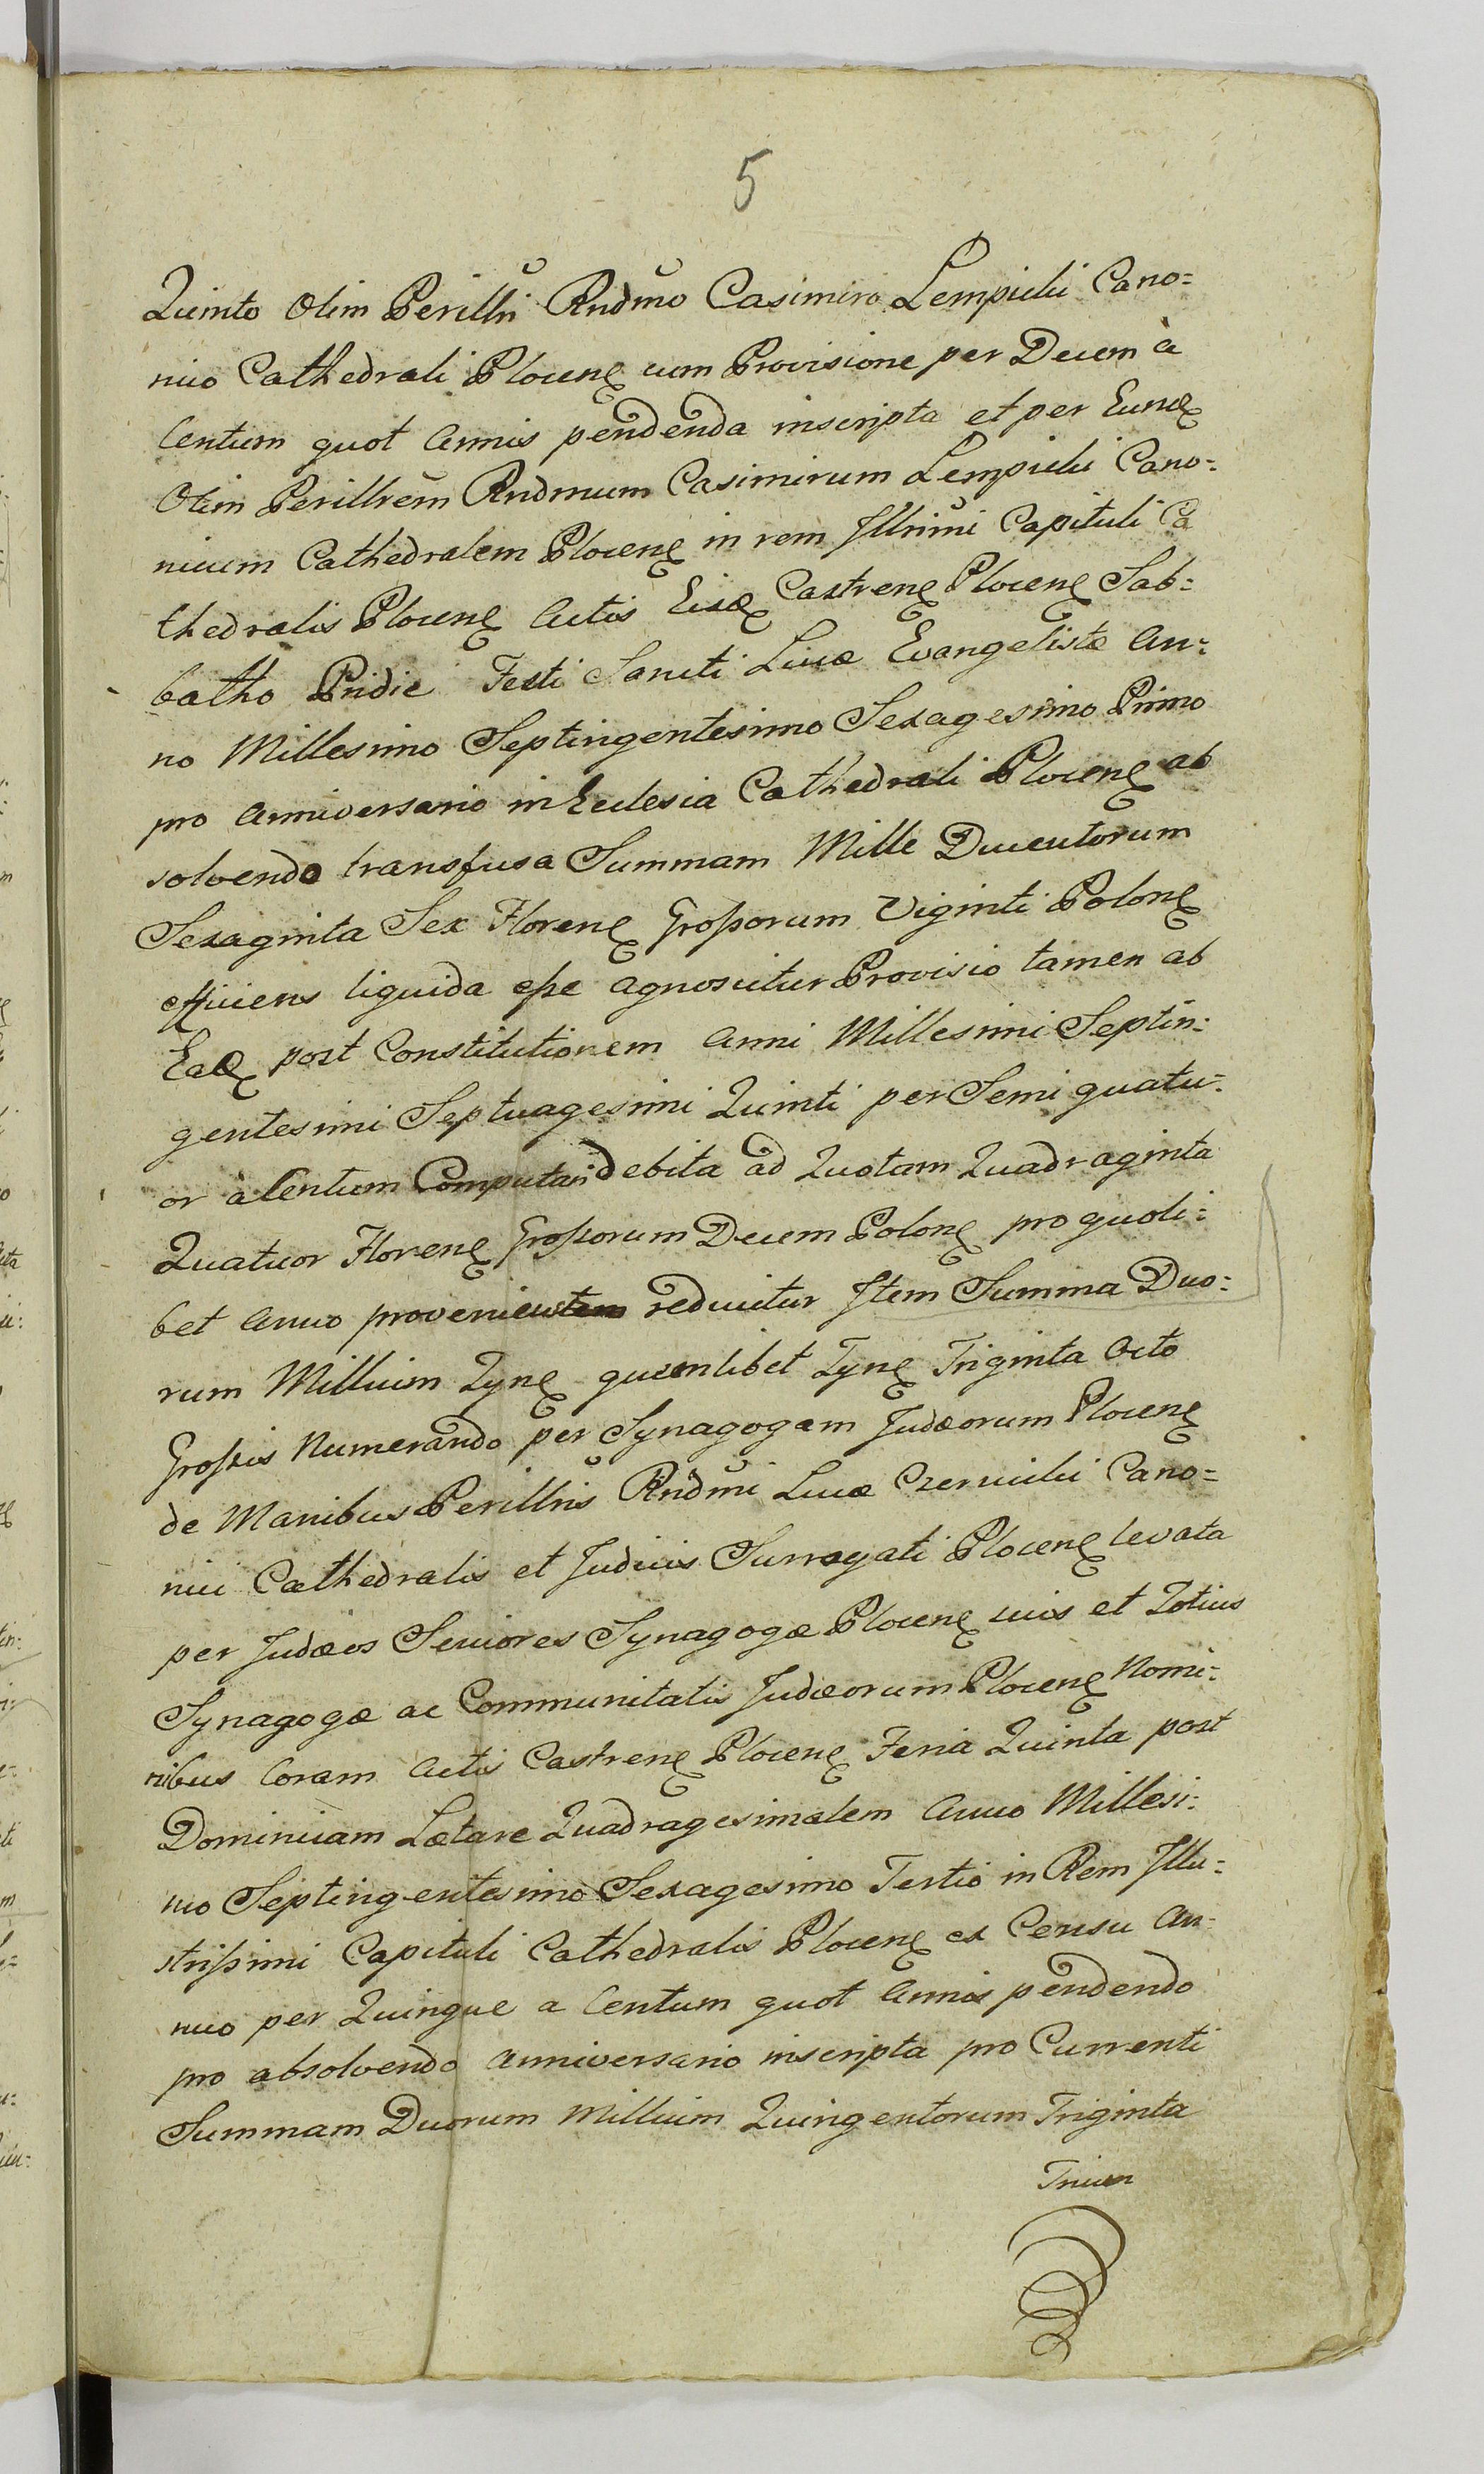 5
Quinto Olim Perillri Rndmo Casimiro Lempicki Cano=
nico Cathedrali Plocen cum Provisione per Decem à
Centum quot Annis pendenda inscripta et per Eund
Olim Perillrem Rndmum Casimirum Lempicki Cano=
nicum Cathedralem Plocen in rem Illrimi Capituli Ca
thedralis Plocen Actis Eisd Castren Plocen Sab=
batho Pridie Festi Sancti Lucæ Evangelistæ An=
no Millesimo Septingentesimo Sexagesimo Primo
pro Anniversario in Ecclesia Cathedrali Plocen ab
solvendo transfusa Summam Mille Ducentorum
Sexaginta Sex Floren Grossorum Viginti Polon
efficiens liquida esse agnoscitur Provisio tamen ab
Ead post Constitutionem Anni Millesimi Septin=
gentesimi Septuagesimi Quinti per Semi quatu=
or à Centum Computari debita ad Quotam Quadraginta
Quatuor Floren Grossorum Decem Polon pro quoli=
bet Anno provenientem reducitur Item Summa Duo=
rum Millium Tynf quemlibet Tynf Triginta Octo
Grossis Numerando per Synagogam Judæorum Plocen
de Manibus Perillris Rndmi Lucæ Czernicki Cano=
nici Cathedralis et Judicis Surrogati Plocen levata
per Judæos Seniores Synagogæ Plocen suis et Totius
Synagogæ ac Communitatis Judæorum Plocen Nomi=
nibus Coram Actis Castren Plocen Feria Quinta post
Dominicam Lætare Quadragesimalem Anno Millesi=
mo Septingentesimo Sexagesimo Tertio in Rem Illu=
strissimi Capituli Cathedralis Plocen ex Censu An=
nuo per Quinque a Centum quot Annis pendendo
pro absolvendo Anniversario inscripta pro Currenti
Summam Duorum Millium Quingentorum Triginta
Trium